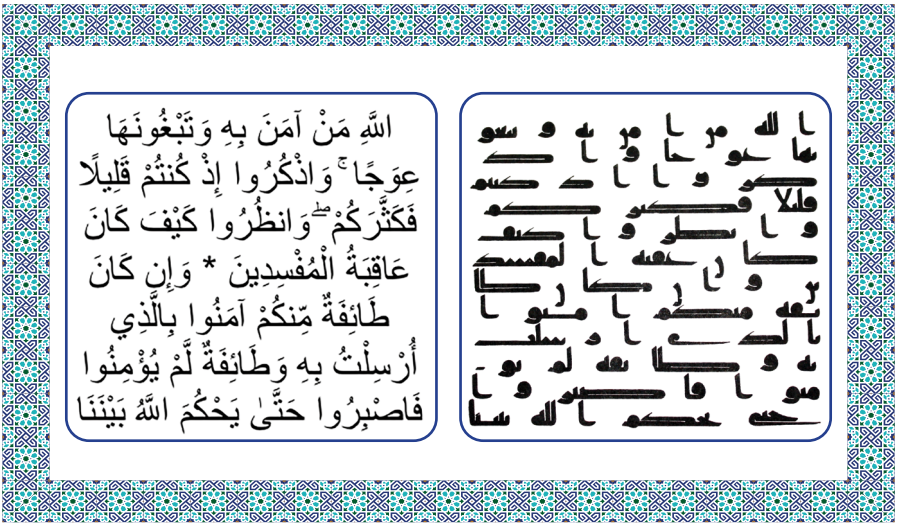 الله من امن به و تبغو
نها عوجا و اذ
كروا اذ كنتم
قليلا فكثركم
و انظروا كيف
كان عقبه المفسد
ين و ان كان طا
ئفه منكم امنوا
بالذي ارسلت
به و طائفه لم يو
منوا فاصبروا
حتى يحكم الله بيننا
اللَّهِ مَنْ آمَنَ بِهِ وَتَبْغُونَهَا
عِوَجًا ۚ وَاذْكُرُوا إِذْ كُنتُمْ قَلِيلًا
فَكَثَّرَكُمْ ۖ وَانظُرُوا كَيْفَ كَانَ
عَاقِبَةُ الْمُفْسِدِينَ * وَإِن كَانَ
طَائِفَةٌ مِّنكُمْ آمَنُوا بِالَّذِي
أُرْسِلْتُ بِهِ وَطَائِفَةٌ لَّمْ يُؤْمِنُوا
فَاصْبِرُوا حَتَّىٰ يَحْكُمَ اللَّهُ بَيْنَنَا